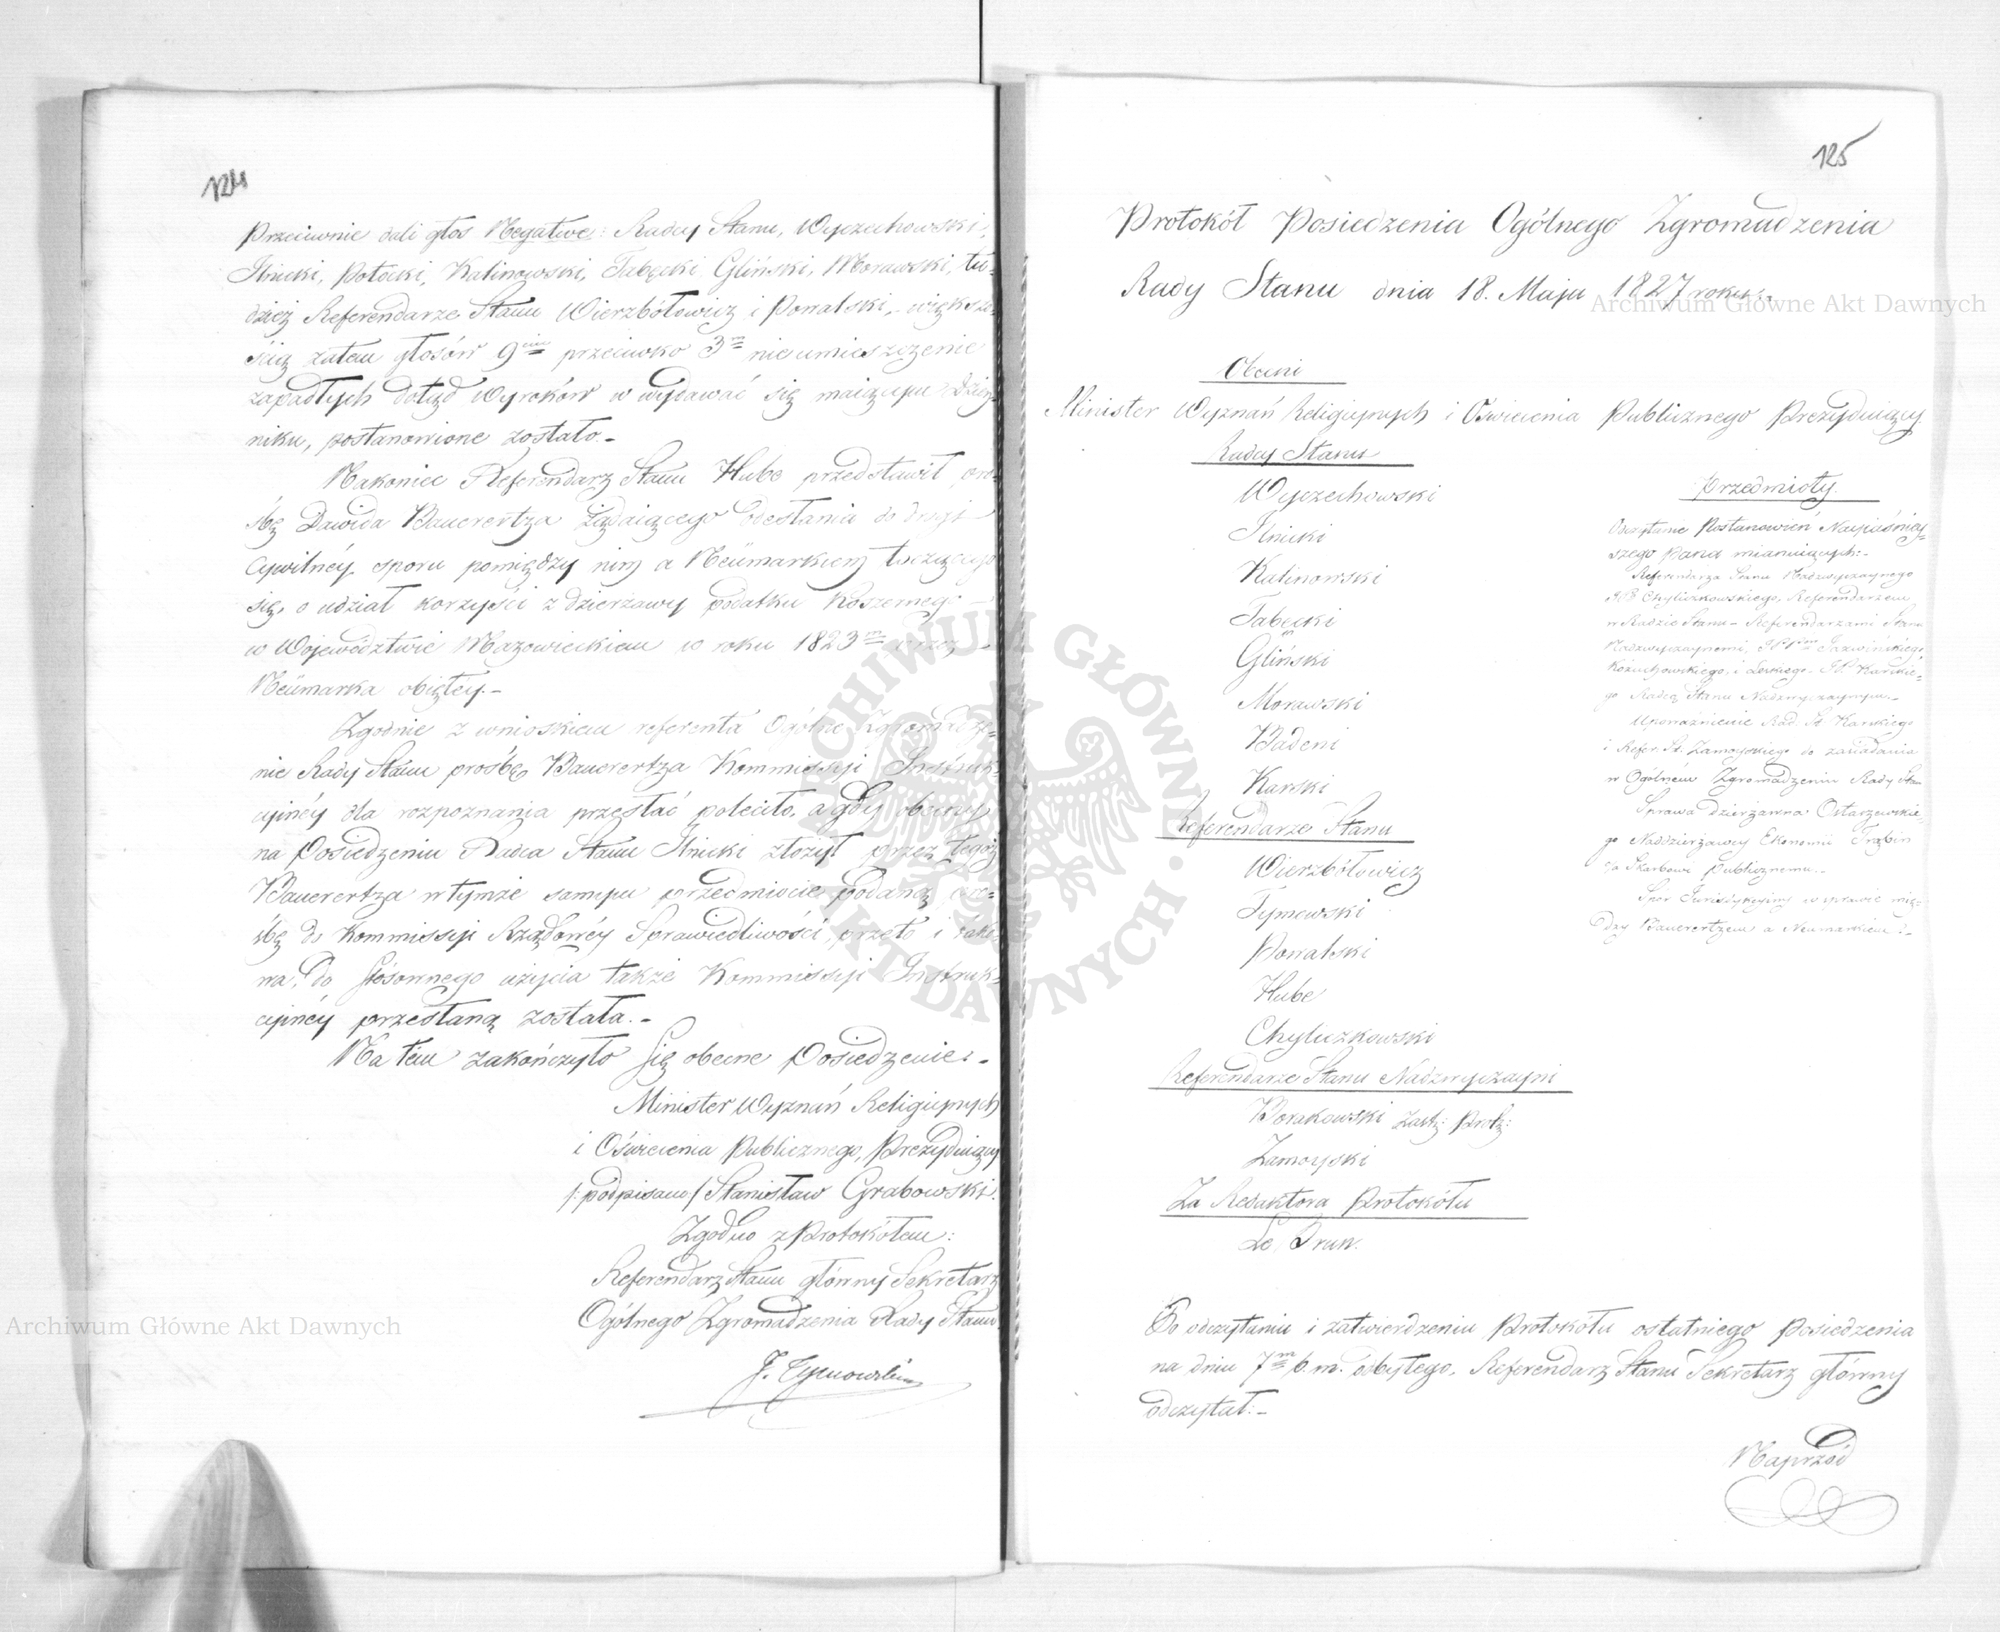 124
Przeciwnie dali głos Negatwe: Radcy Stanu, Wyczechowski,
Ilnicki, Potocki, Kalinowski, Tabęcki, Gliński, Morawski, tu-
dzież Referendarze Stanu Wierzbółowicz i Powalski, - większo-
ścią zatem głosów 9ciu przeciwko 3m nieumieszczenie
zapadłych dotąd Wyroków w wydawać się maiącym Dzien-
niku, postanowione zostało. -
Nakoniec Referendarz Stanu Hube przedstawił pro-
śbę Dawida Bauerertza żądaiącego odesłania do drogi
cywilnéy sporu pomiędzy nim a Neümarkiem toczącego
się, o udział korzyści z dzierżawy podatku Koszernego
w Województwie Mazowieckiem w roku 1823m przez
Neümarka obiętey. -
Zgodnie z wnioskiem referenta Ogólne Zgromadze-
nie Rady Stanu prośbę Bauerertza Kommissyi Instruk-
cyinéy dla rozpoznania przesłać poleciło, a gdy obecny
na Posiedzeniu Radca Stanu Ilnicki złożył przez tegoż
Bauerertza w tymże samym przedmiocie podaną pro-
śbę do Kommissyi Rządowéy Sprawiedliwości, przeto i tako-
wa, do stosownego użycia także Kommissyi Instruk-
cyinéy przesłaną została. -
Na tém zakończyło się obecne Posiedzenie. -
Minister Wyznań Religiynych
i Oświecenia Publicznego, Prezyduiący
/:podpisano/ Stanisław Grabowski.
Zgodno z Protokółem:
Referendarz Stanu główny Sekretarz
Ogólnego Zgromadzenia Rady Stanu
J. Tymowski
125
Protokół Posiedzenia Ogólnego Zgromadzenia
Rady Stanu dnia 18. Maja 1827 roku.
Obecni
Minister Wyznań Religiynych i Oświecenia Publicznego Prezyduiący
Radcy Stanu
Wyczechowski
Ilnicki
Kalinowski
Tabęcki
Gliński
Morawski
Badeni
Karski
Referendarze Stanu
Wierzbółowicz
Tymowski
Powalski
Hube
Chyliczkowski
Referendarze Stanu Nadzwyczayni
Borakowski Zast: Prok:
Zamoyski
Za Redaktora Protokółu
Le Brun.
Przedmioty.
Odczytanie Postanowień Nayiaśniey-
szego Pana mianuiących: -
Referendarza Stanu Nadzwyczaynego
JP Chyliczkowskiego, Referendarzem
w Radzie Stanu - Referendarzami Stanu
Nadzwyczaynemi, JPPów
Kożuchowskiego, i Leskiego - JP. Karskie-
go Radcą Stanu Nadzwyczaynym. -
Upoważnienie Rad. St. Karskiego
i Refer. St. Zamoyskiego do zasiadania
w Ogólném Zgromadzeniu Rady Stanu
Sprawa dzierżawna: Ostaszewskie-
go Naddzierżawcy Ekonomii Trąbin
ze Skarbem Publicznemu. -
Spór Jurisdykcyiny w sprawie mię-
dzy Bauerertzem a Neumarkiem. -
Po odczytaniu i zatwierdzeniu Protokółu ostatniego posiedzenia
na dniu 7m b. m. odbytego, Referendarz Stanu Sekretarz główny
odczytał: -
Naprzód
Archiwum Główne Akt Dawnych
Archiwum Główne Akt Dawnych
ARCHIWUM GŁÓWNE AKT DAWNYCH